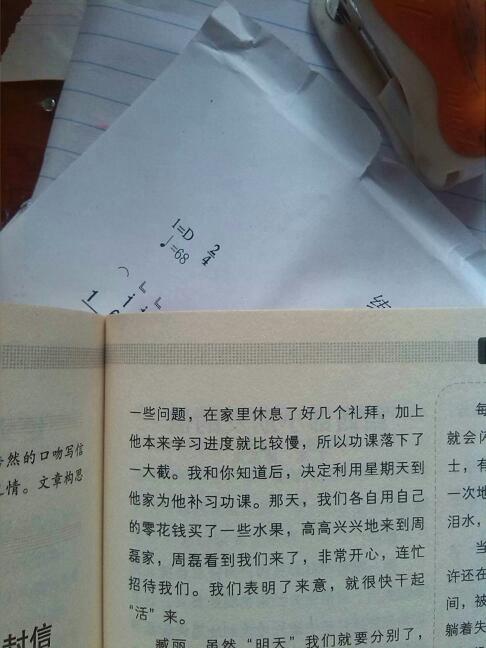 1=D 2/4
♩=68
一些问题，在家里休息了好几个礼拜，加上
他本来学习进度就比较慢，所以功课落下了
一大截。我和你知道后，决定利用星期天到
他家为他补习功课。那天，我们各自用自己
的零花钱买了一些水果，高高兴兴地来到周
磊家，周磊看到我们来了，非常开心，连忙
招待我们。我们表明了来意，就很快干起
“活”来。
臧丽，虽然“明天”我们就要分别了，
然的口吻写信
情。文章构思
封信
每
就会闪
士，有
一次地
泪水，
当
许还在
间，被
躺着失